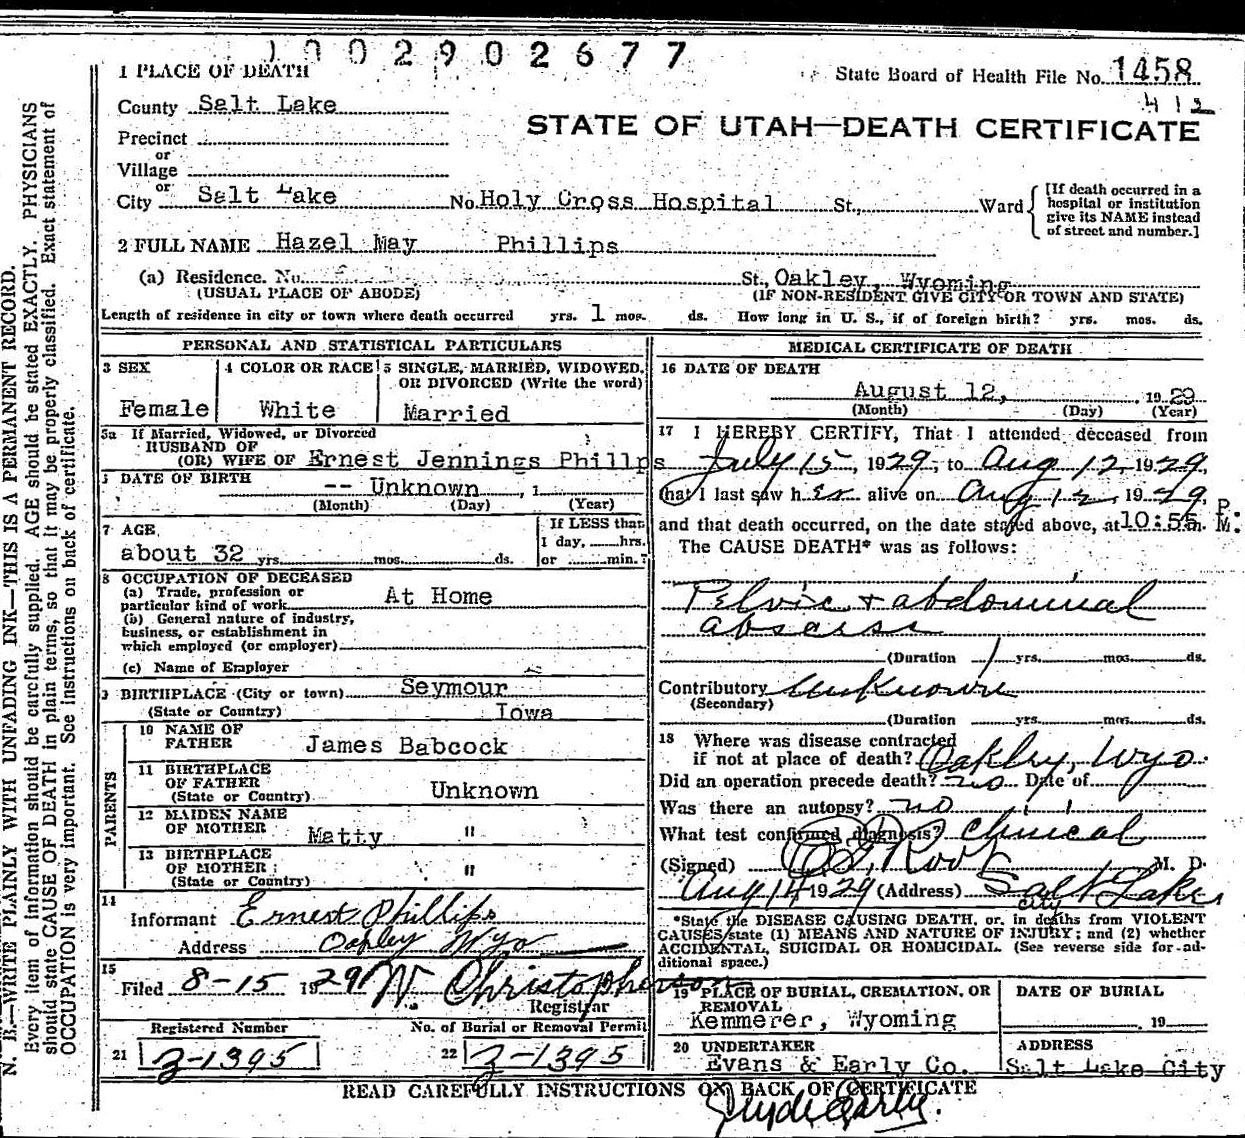 1002902677
1 PLACE OF DEATH
State Board of Health File No. 1458
412
County Salt Lake
STATE OF UTAH—DEATH CERTIFICATE
Precinct
or
Village
or
City Salt Lake No. Holy Cross Hospital St., Ward
[If death occurred in a
hospital or institution
give its NAME instead
of street and number.]
2 FULL NAME Hazel May Phillips
(a) Residence. No. St., Oakley, Wyoming
(USUAL PLACE OF ABODE) (IF NON-RESIDENT GIVE CITY OR TOWN AND STATE)
Length of residence in city or town where death occurred yrs. 1 mos. ds. How long in U. S., if of foreign birth? yrs. mos. ds.
PERSONAL AND STATISTICAL PARTICULARS
3 SEX
Female
4 COLOR OR RACE
White
5 SINGLE, MARRIED, WIDOWED,
OR DIVORCED (Write the word)
Married
5a If Married, Widowed, or Divorced
HUSBAND OF
(OR) WIFE OF Ernest Jennings Phillps
DATE OF BIRTH
-- Unknown , 1
(Month) (Day) (Year)
7 AGE
about 32 yrs. mos. ds.
If LESS than
1 day, hrs.
or min.?
8 OCCUPATION OF DECEASED
(a) Trade, profession or
particular kind of work At Home
(b) General nature of industry,
business, or establishment in
which employed (or employer)
(c) Name of Employer
9 BIRTHPLACE (City or town) Seymour
(State or Country) Iowa
PARENTS
10 NAME OF
FATHER James Babcock
11 BIRTHPLACE
OF FATHER Unknown
(State or Country)
12 MAIDEN NAME
OF MOTHER Matty "
13 BIRTHPLACE
OF MOTHER "
(State or Country)
14
Informant Ernest Phillips
Address Oakley Wyo
15
Filed 8-15 1929 W Christopherson
Registrar
Registered Number No. of Burial or Removal Permit
21 Z-1395 22 Z-1395
MEDICAL CERTIFICATE OF DEATH
16 DATE OF DEATH
August 12, , 1929
(Month) (Day) (Year)
17 I HEREBY CERTIFY, That I attended deceased from
July 15, 1929, to Aug 12, 1929,
that I last saw her alive on Aug 12, 1929,
and that death occurred, on the date stated above, at 10:55 P.M.
The CAUSE DEATH* was as follows:
Pelvic & abdominal
abscess
(Duration 1 yrs. mos. ds.
Contributory Unknown
(Secondary)
(Duration yrs. mos. ds.
18 Where was disease contracted
if not at place of death? Oakley, Wyo.
Did an operation precede death? no Date of
Was there an autopsy? no
What test confirmed diagnosis? Clinical
(Signed) Root M. D.
Aug 14 1929 (Address) Salt Lake
City
*State the DISEASE CAUSING DEATH, or, in deaths from VIOLENT
CAUSES state (1) MEANS AND NATURE OF INJURY; and (2) whether
ACCIDENTAL, SUICIDAL OR HOMICIDAL. (See reverse side for ad-
ditional space.)
19 PLACE OF BURIAL, CREMATION, OR
REMOVAL
Kemmerer, Wyoming
DATE OF BURIAL
, 19
20 UNDERTAKER
Evans & Early Co.
ADDRESS
Salt Lake City
READ CAREFULLY INSTRUCTIONS ON BACK OF CERTIFICATE
Early.
N. B.—WRITE PLAINLY WITH UNFADING INK—THIS IS A PERMANENT RECORD.
Every item of information should be carefully supplied. AGE should be stated EXACTLY. PHYSICIANS
should state CAUSE OF DEATH in plain terms, so that it may be properly classified. Exact statement of
OCCUPATION is very important. See instructions on back of certificate.